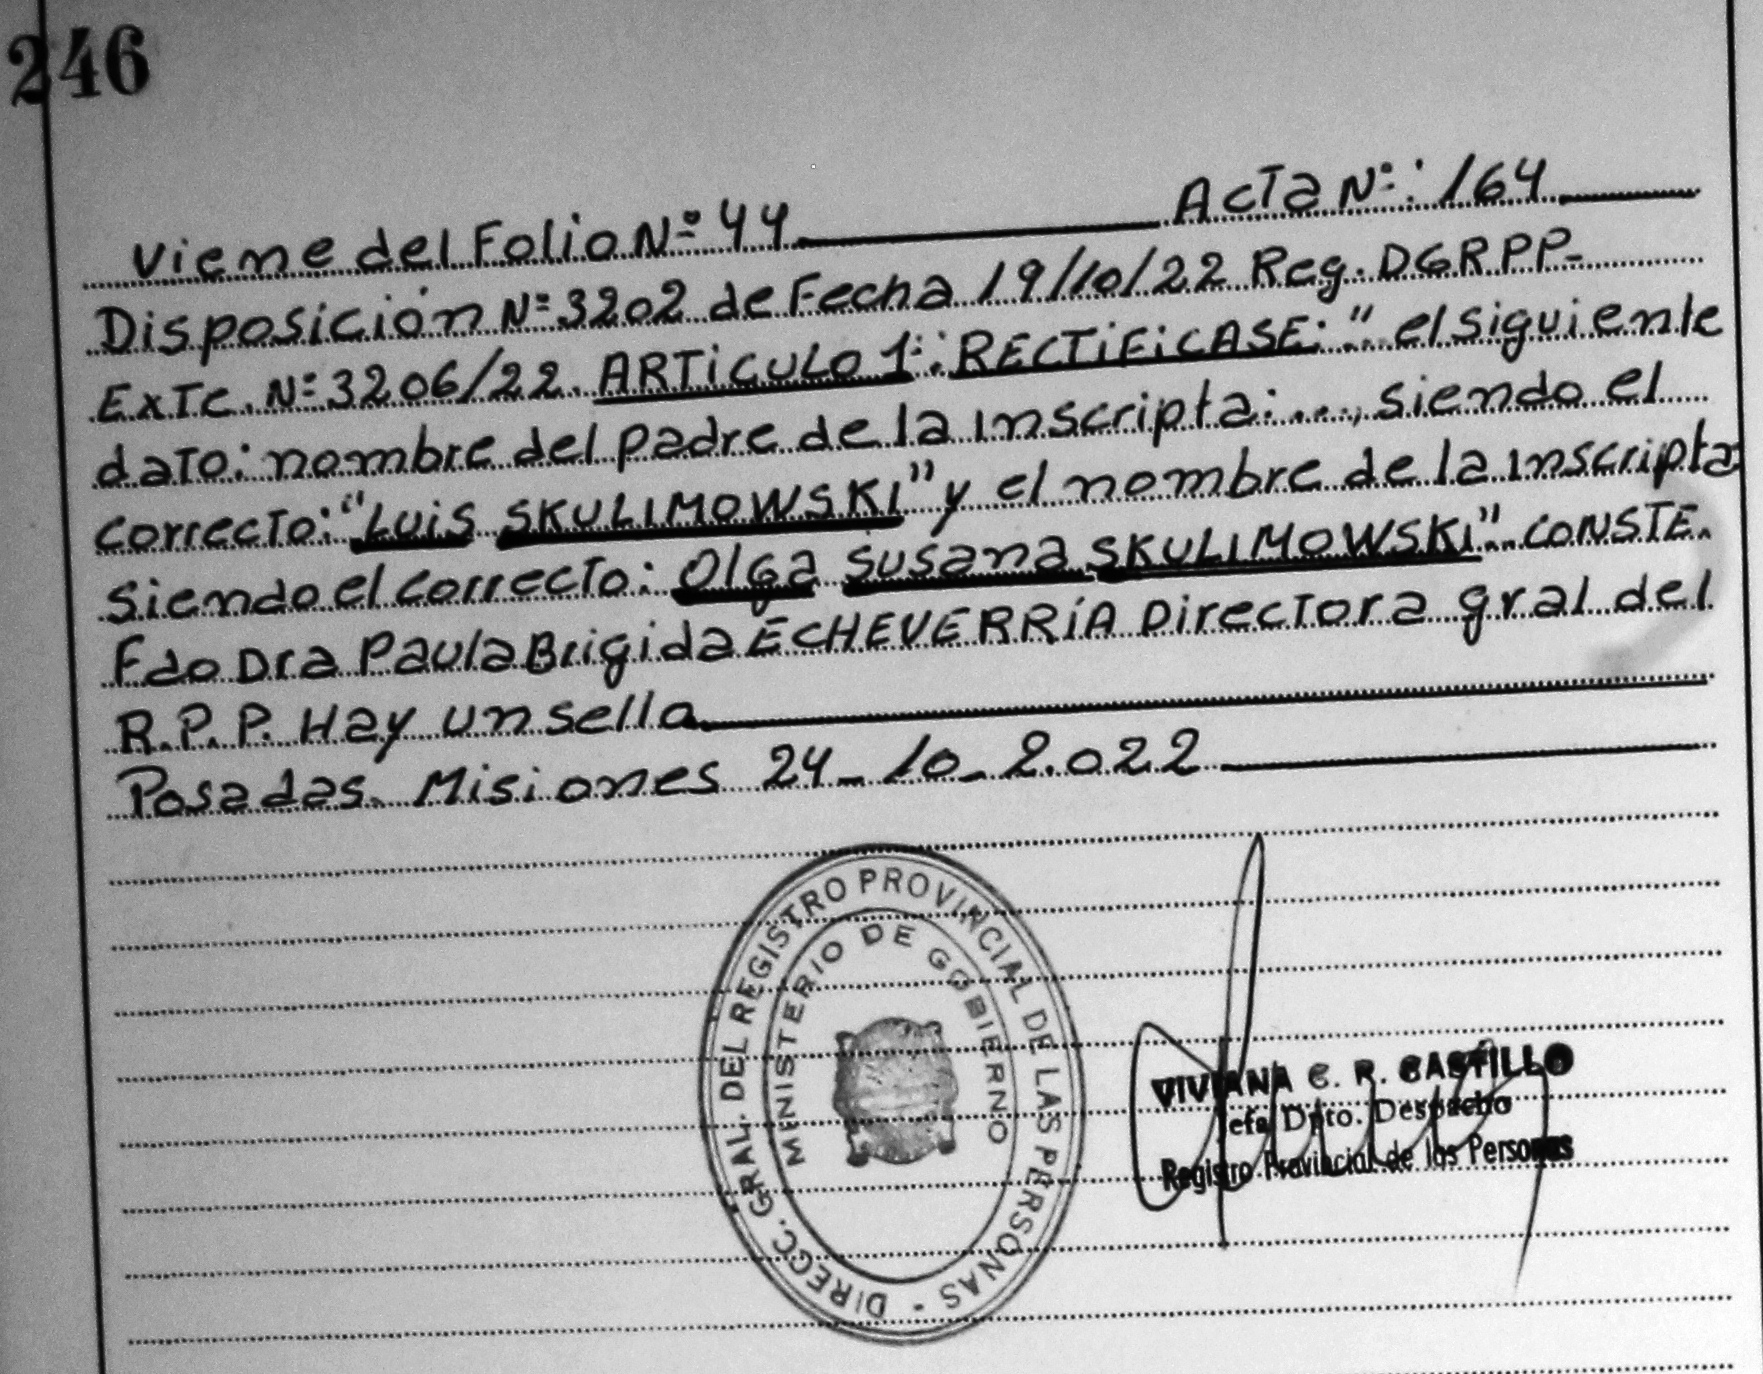 246
Viene del Folio Nº 44 Acta Nº: 164
Disposición Nº 3202 de Fecha 19/10/22 Reg. DGRPP-
ExTe. Nº 3206/22. ARTICULO 1º: RECTIFICASE: " el siguiente
dato: nombre del padre de la inscripta: ..., siendo el
correcto: "Luis SKULIMOWSKI" y el nombre de la inscripta
siendo el correcto: Olga Susana SKULIMOWSKI". CONSTE.
Fdo Dra Paula Brigida ECHEVERRÍA Directora gral del
R.P.P. Hay un sello.
Posadas. Misiones 24-10-2.022
DIRECC. GRAL. DEL REGISTRO PROVINCIAL DE LAS PERSONAS -
MINISTERIO DE GOBIERNO
VIVIANA C. R. CASTILLO
Jefa Dpto. Despacho
Registro Provincial de las Personas